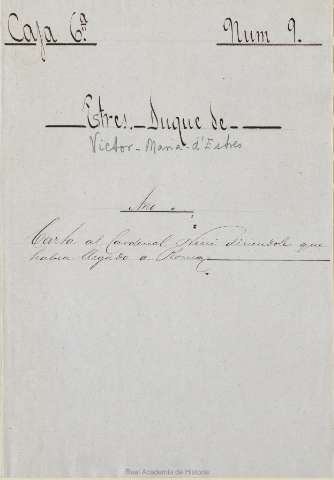 Caja 6ª Num 9.
Estres. Duque de
Victor-Maria-d'Estres
Carta al Cardenal diciendole que
habia llegado a Roma
Real Academia de Historia